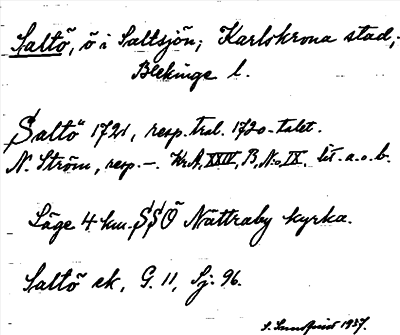 Saltö, ö i Saltsjön; Karlskrona stad;
Blekinge l.
Saltö 1721, resp. trol. 1720-talet.
N. Ström, resp. –. Kr. A, XXIV, B, No, IX. lit. a. o. b.
Läge 4 km. SSO Nättraby kyrka.
Saltö ek, G. 11, Sj. 96.
1937.